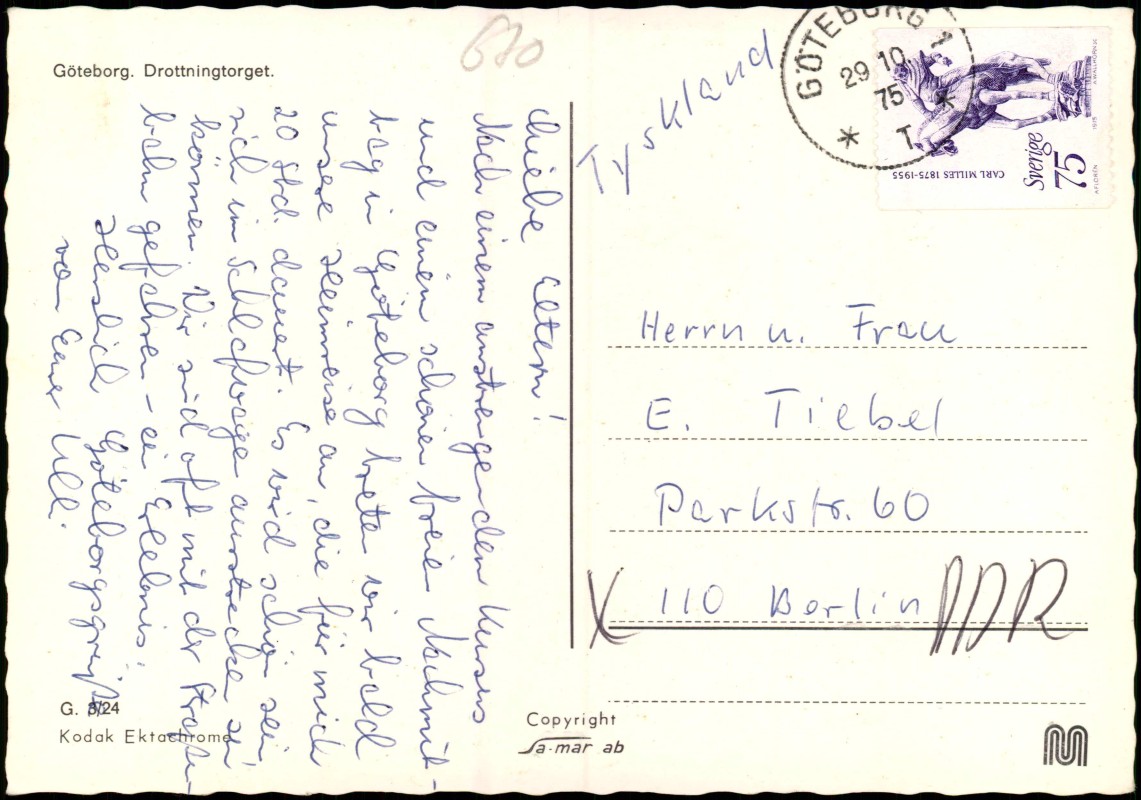 Göteborg. Drottningtorget.
670
Liebe Eltern!
Nach einem anstrengenden Kursus
und einem schönen freien Nachmit-
tag in Göteborg treten wir bald
unsere Heimreise an, die für mich
20 Std. dauert. Es wird schön sein
sich im Schlafwagen ausstrecken zu
können. Wir sind oft mit der Straßen-
bahn gefahren – ein Erlebnis.
Herzlich Göteborgsgrüße
von Eurer Ulli.
G. 8/24
Kodak Ektachrome
Copyright
Sa-mar ab
Tyskland
GÖTEBORG 1
29 10
75
* T *
75
Sverige
CARL MILLES 1875-1955
A FLOREN
1975
A WALLHORN SC
Herrn u. Frau
E. Tiebel
Parkstr. 60
X 110 Berlin DDR